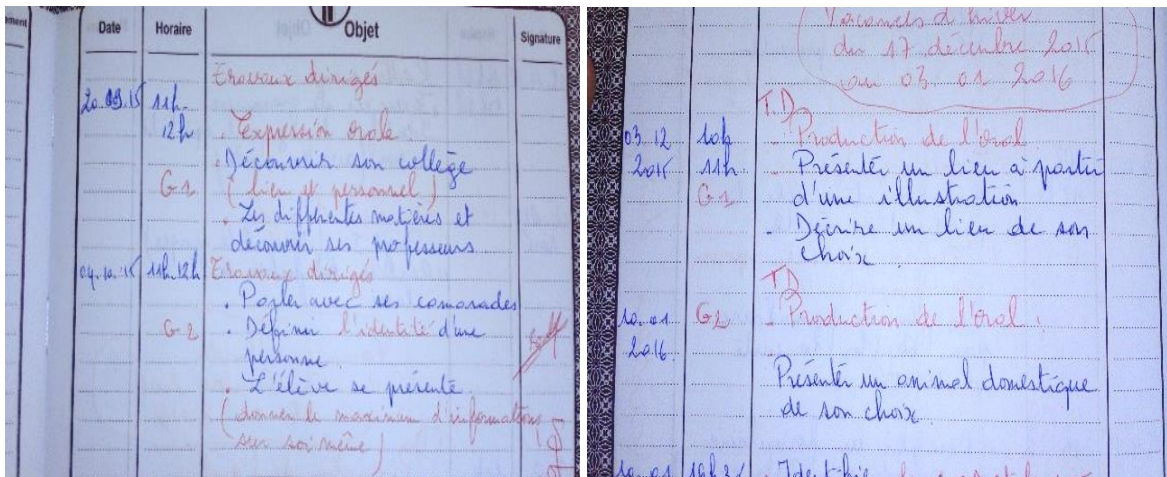 Date Horaire Objet Signature
Travaux dirigés
20.09.15 11h-
12h . Expression orale
. Découvrir son collège
G1 (lieu et personnel)
. Les différentes matières et
découvrir ses professeurs
04.10.15 11h-12h Travaux dirigés
. Parler avec ses camarades
G2 . Définir l'identité d'une
personne.
. L'élève se présente
(donner le maximum d'informations
sur soi même)
Vacances d'hiver
du 17 décembre 2015
au 03 01 2016
T.D
03.12 10h - Production de l'oral
2015 11h - Présenter un lieu à partir
G1 d'une illustration
- Décrire un lieu de son
choix.
T.D
10.01 G2 - Production de l'oral.
2016.
Présenter un animal domestique
de son choix.